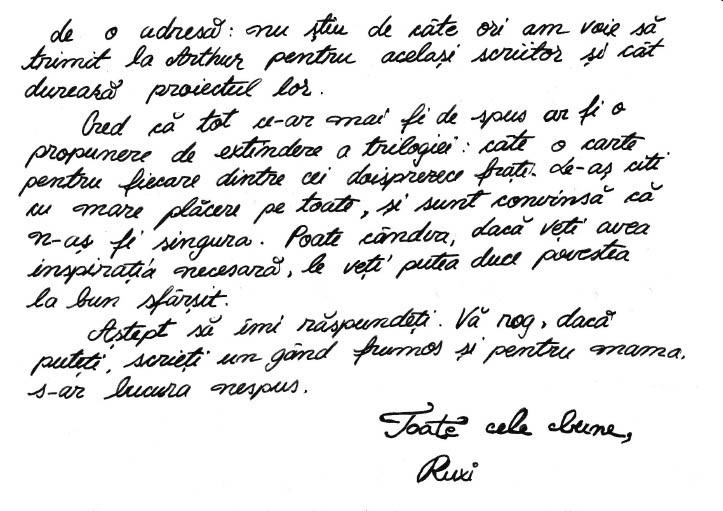 de o adresă: nu știu de câte ori am voie să
trimit la Arthur pentru același scriitor și cât
durează proiectul lor.
Cred că tot ce-ar mai fi de spus ar fi o
propunere de extindere a trilogiei: câte o carte
pentru fiecare dintre cei doisprezece frați. Le-aș citi
cu mare plăcere pe toate, și sunt convinsă că
n-aș fi singura. Poate cândva, dacă veți avea
inspirația necesară, le veți putea duce povestea
la bun sfârșit.
Aștept să îmi răspundeți. Vă rog, dacă
puteți, scrieți un gând frumos și pentru mama.
s-ar bucura nespus.
Toate cele bune,
Ruxi